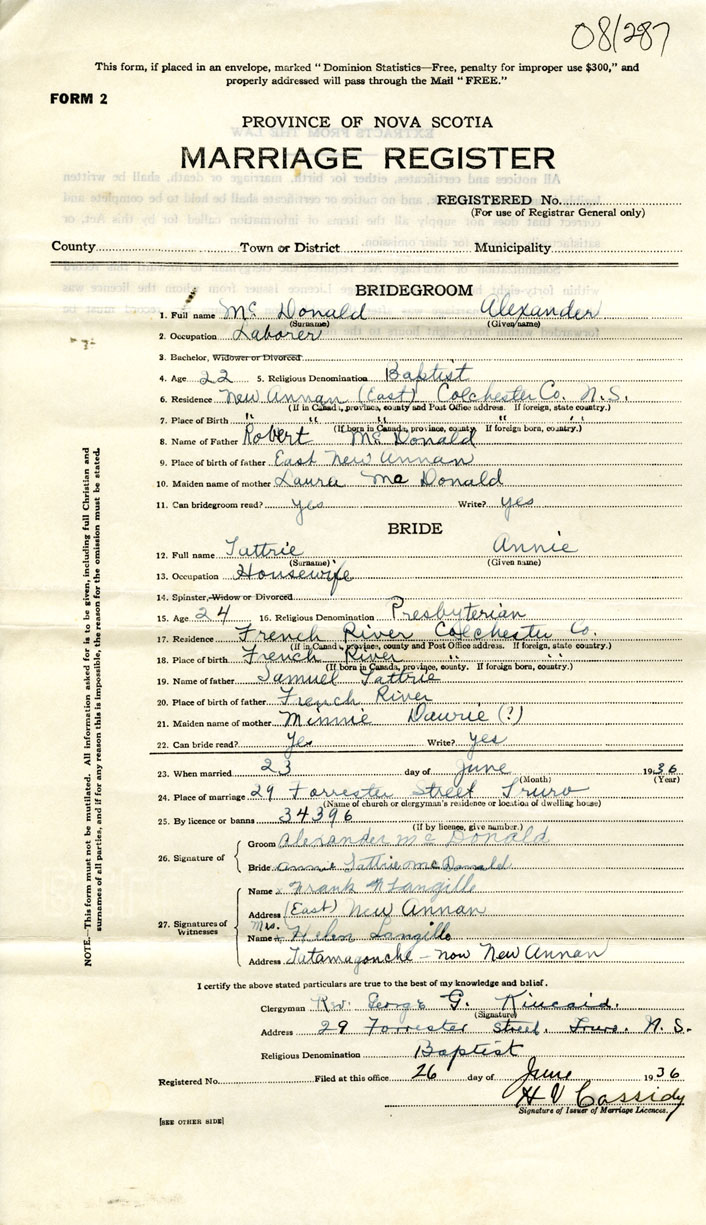 08/287
This form, if placed in an envelope, marked "Dominion Statistics—Free, penalty for improper use $300," and
properly addressed will pass through the Mail "FREE."
FORM 2
PROVINCE OF NOVA SCOTIA
MARRIAGE REGISTER
REGISTERED No.
(For use of Registrar General only)
County Town or District Municipality
BRIDEGROOM
1. Full name Mc Donald Alexander
(Surname) (Given name)
2. Occupation Laborer
3. Bachelor, Widower or Divorced
4. Age 22 5. Religious Denomination Baptist
6. Residence New Annan (East) Colchester Co. N.S.
(If in Canada, province, county and Post Office address. If foreign, state country.)
7. Place of Birth " " " " "
(If born in Canada, province, county. If foreign born, country.)
8. Name of Father Robert Mc Donald
9. Place of birth of father East New Annan
10. Maiden name of mother Laura Mc Donald
11. Can bridegroom read? yes Write? yes
BRIDE
12. Full name Tattrie Annie
(Surname) (Given name)
13. Occupation Housewife
14. Spinster, Widow or Divorced
15. Age 24 16. Religious Denomination Presbyterian
17. Residence French River Colchester Co.
(If in Canada, province, county and Post Office address. If foreign, state country.)
18. Place of birth French River " "
(If born in Canada, province, county. If foreign born, country.)
19. Name of father Samuel Tattrie
20. Place of birth of father French River
21. Maiden name of mother Minnie Dawrie (?)
22. Can bride read? Yes Write? yes
23. When married 23 day of June 1936
(Month) (Year)
24. Place of marriage 29 Forrester Street Truro
(Name of church or clergyman's residence or location of dwelling house)
25. By licence or banns 34396
(If by licence, give number.)
26. Signature of
Groom Alexander Mc Donald
Bride Annie Tattrie McDonald
27. Signatures of Witnesses
Name Frank Langille
Address (East) New Annan
Name Mrs. Helen Langille
Address Tatamagouche - now New Annan
I certify the above stated particulars are true to the best of my knowledge and belief.
Clergyman Rev. George G. Kincaid.
(Signature)
Address 29 Forrester Street. Truro. N.S.
Religious Denomination Baptist
Registered No. Filed at this office 26 day of June 1936
H V Cassidy
Signature of Issuer of Marriage Licences.
[SEE OTHER SIDE]
NOTE.—This form must not be mutilated. All information asked for is to be given, including full Christian and
surnames of all parties, and if for any reason this is impossible, the reason for the omission must be stated.